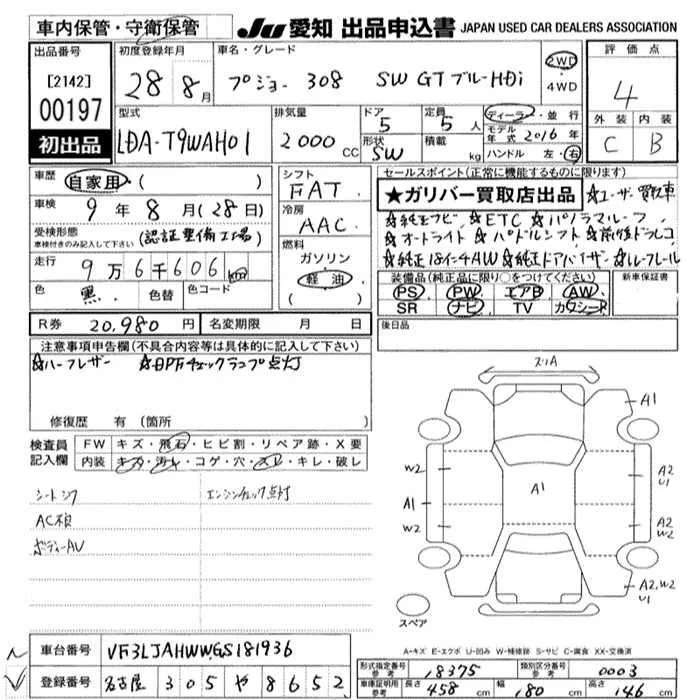 車内保管・守衛保管
JU 愛知 出品申込書 JAPAN USED CAR DEALERS ASSOCIATION
出品番号
[2142]
00197
初出品
初度登録年月
28年 8月
車名・グレード
プジョー 308 SW GTブルーHDi
2WD
4WD
評価点
4
外装 内装
C B
型式
LDA-T9WAH01
排気量
2000 CC
ドア
5
形状
SW
定員
5人
積載
kg
ディーラー・並行
モデル年式 2016年
ハンドル 左・右
車歴
自家用・( )
車検
9年 8月(28日)
受検形態
車検付きのみ記入して下さい
(認証整備工場)
走行
9万6千606km
色
黒
色替
色コード
シフト
FAT
冷房
AAC
燃料
ガソリン
軽油
( )
セールスポイント(正常に機能するものに限ります)
★ガリバー買取店出品 ☆ユーザー買取車
☆純正ナビ ☆ETC ☆パノラマルーフ
☆オートライト ☆パドルシフト ☆前後ドラレコ
☆純正18インチAW ☆純正ドアバイザー ☆ルーフレール
装備品(純正品に限り○をつけてください)
PS PW エアB AW
SR ナビ TV カワシート
新車保証書
後日品
R券 20,980円
名変期限 月 日
注意事項申告欄(不具合内容等は具体的に記入して下さい)
☆ハーフレザー ☆DPFチェックランプ点灯
修復歴 有(箇所
検査員記入欄
FW キズ・飛石・ヒビ割・リペア跡・X要
内装 キズ・汚れ・コゲ・穴・スレ・キレ・破レ
シートシワ エンジンチェック点灯
AC不良
ボディーAU
スリA
A1
W2
A2
U1
A1
A1
W2
A2
W2
A2,W2
U1
スペア
A-キズ E-エクボ U-凹み W-補修跡 S-サビ C-腐食 XX-交換済
車台番号 VF3LJAHWWGS181936
登録番号 名古屋 305 や 8652
形式指定番号 参考 18375
類別区分番号 参考 0003
車庫証明用 参考 長さ 458 cm 幅 180 cm 高さ 146 cm